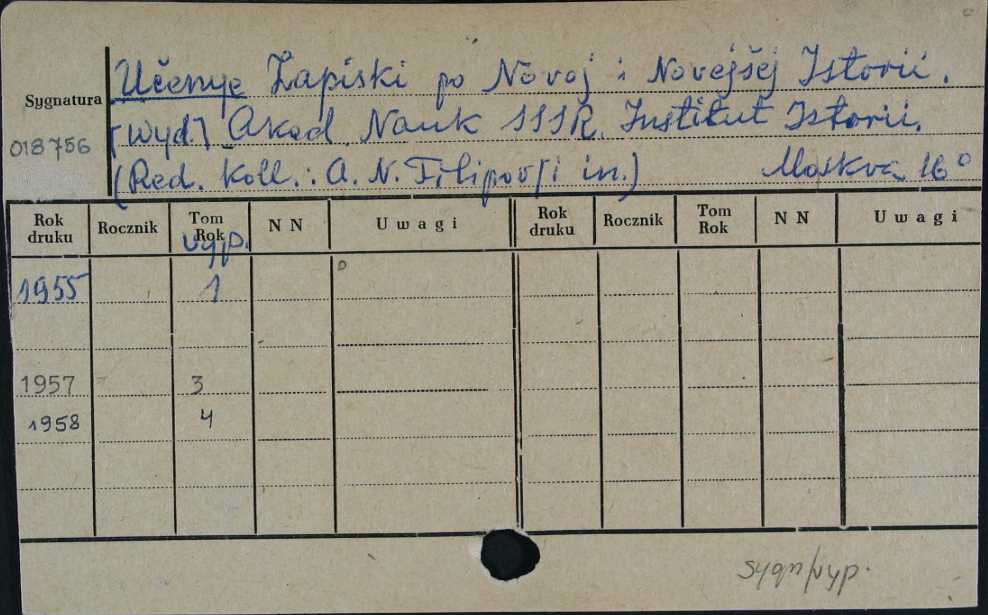 Učenye Zapiski po Novoj i Novejšej Istorii.
Sygnatura
[Wyd.] Akad. Nauk SSSR. Institut Istorii.
018756
(Red. Koll.: A. N. Filipov [i in.) Moskva 16°
Rok druku Rocznik Tom Rok vyp. N N Uwagi Rok druku Rocznik Tom Rok N N Uwagi
1955 1
1957 3
1958 4
sygn/vyp.